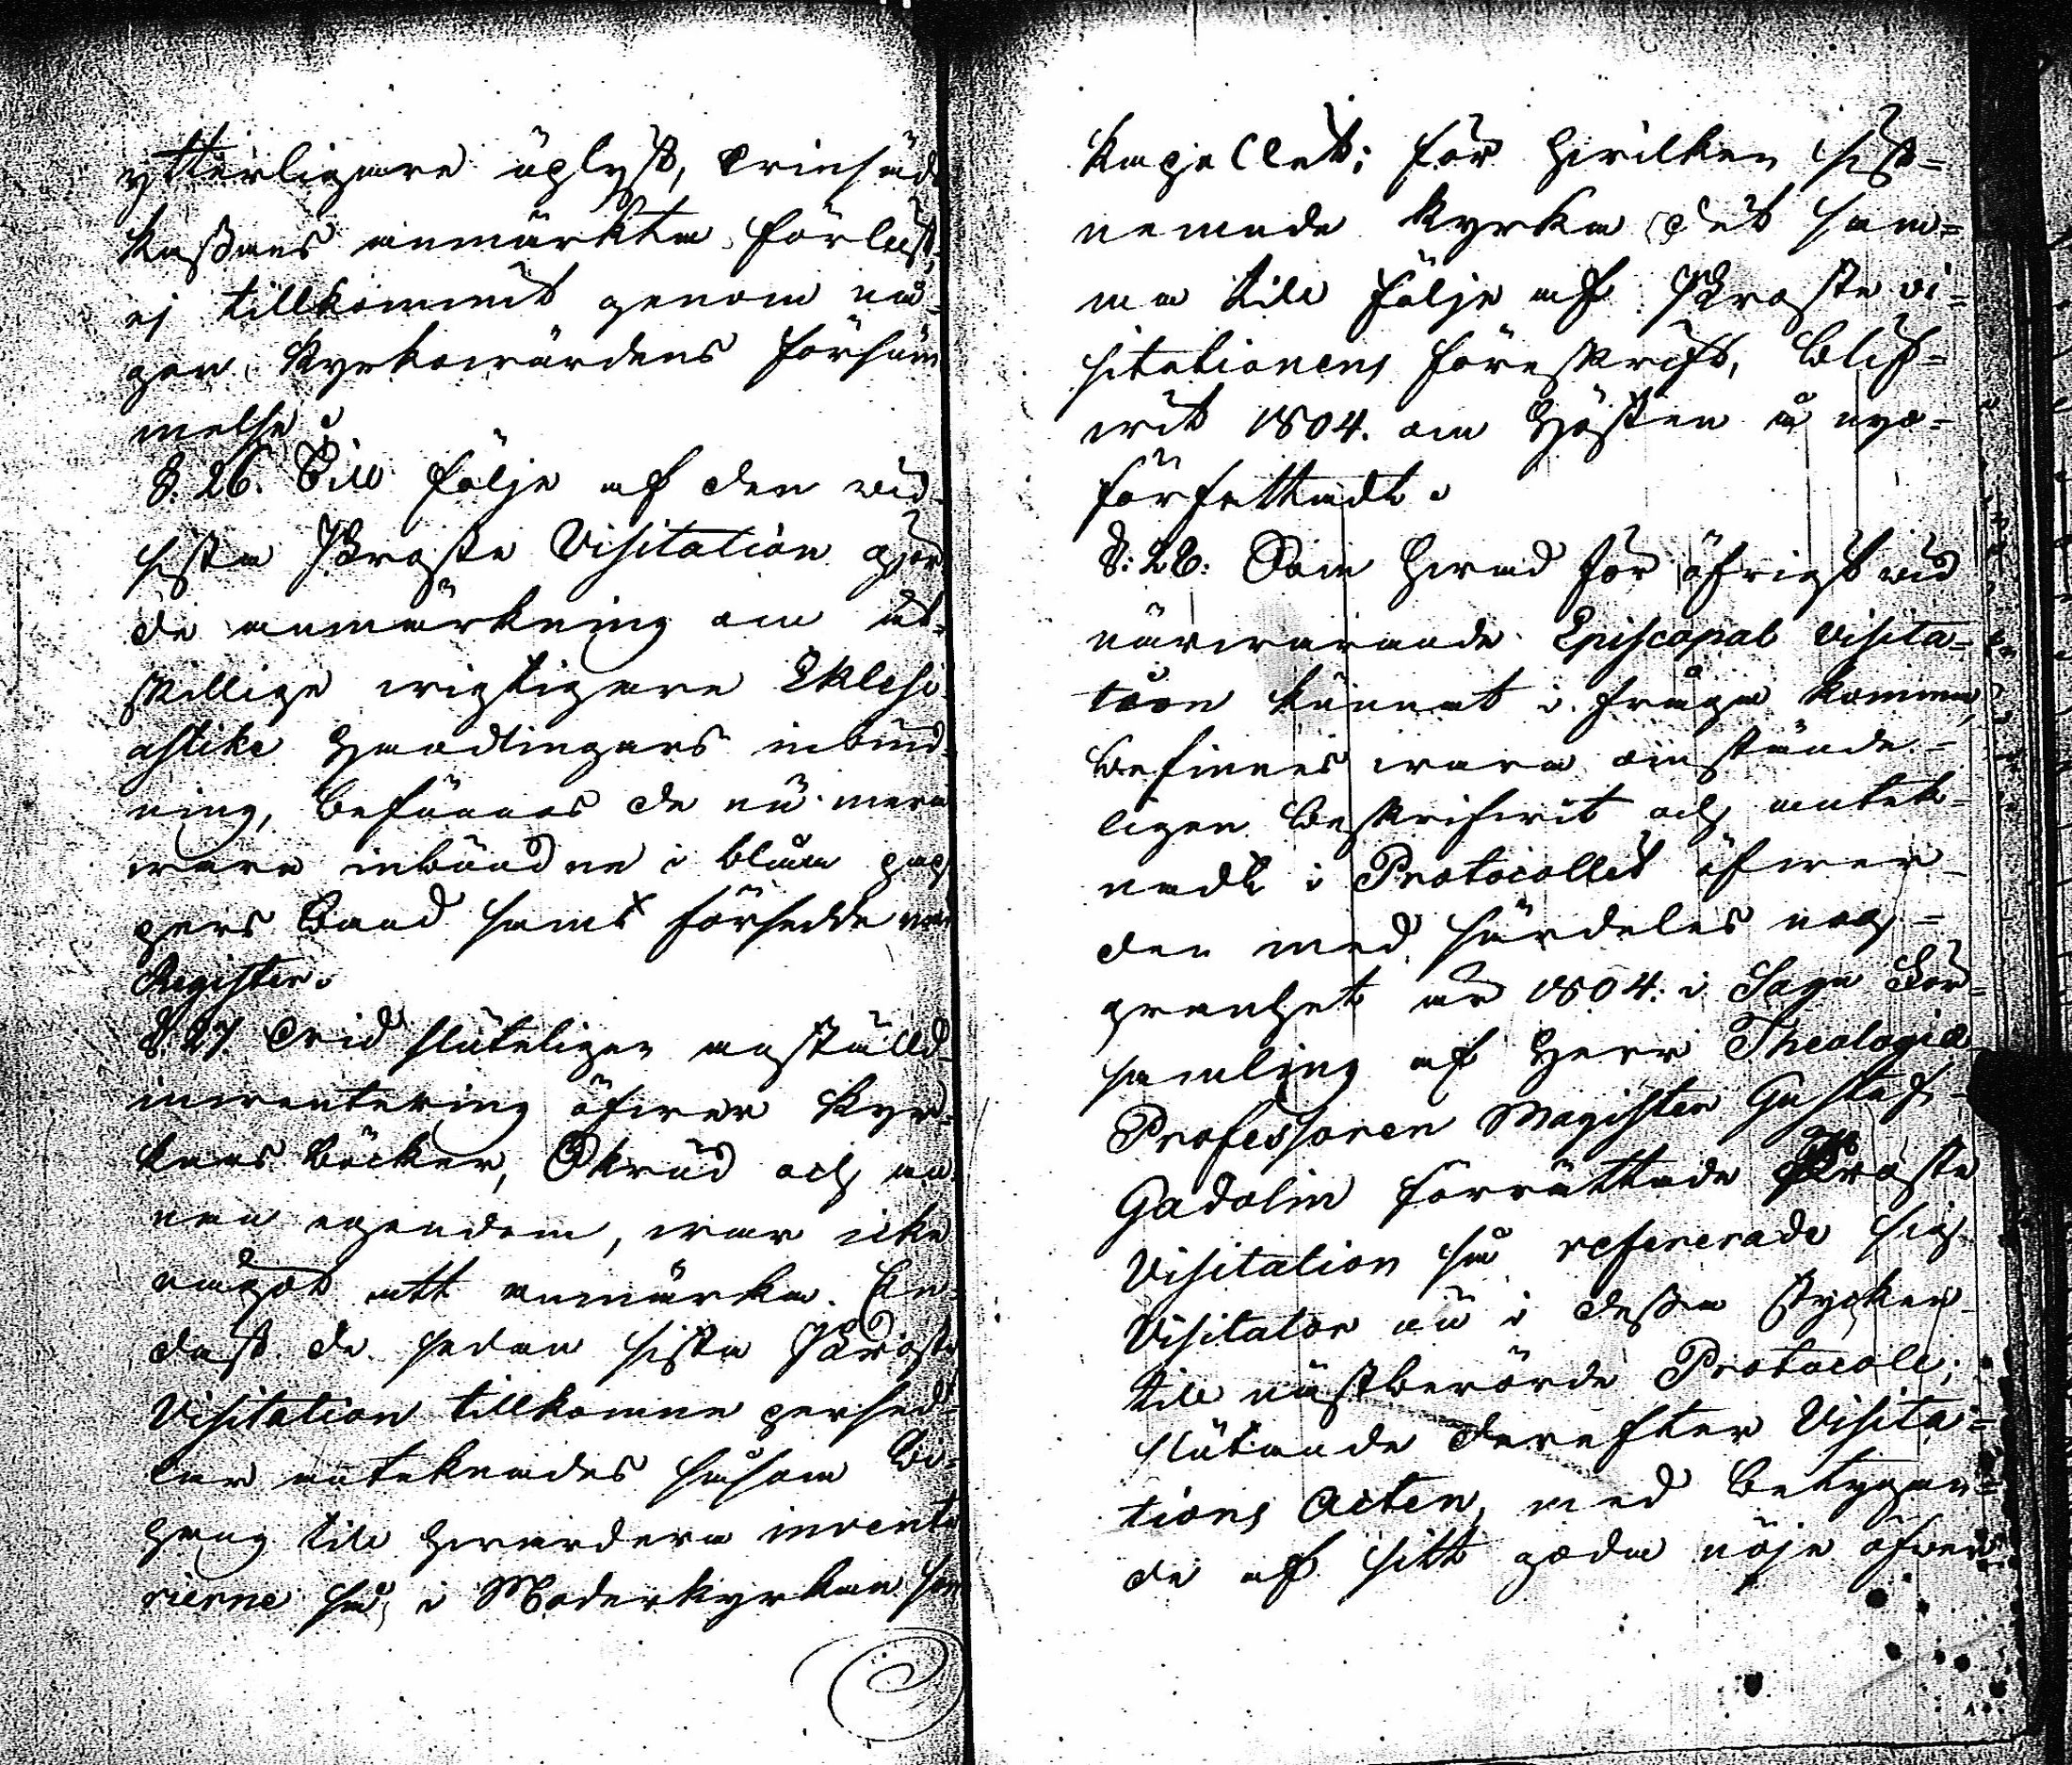 ytterligare uplyst,
Kassans anmärkta förlust,
ej tillkommit genom nå-
gon Kyrkowärdens försum
melse.
§. 26. Till följe af den wid
sista Proste Visitation gjor
de anmärkning om åt-
skillige wigtigare Eklesi-
astike Handlingars inbind-
ning, befunnos de nu mera
wara inbundne i blåa pap
pers Band samt försedde med
Register.
§. 27. Wid sluteligen anställd
inventering öfwer Kyr-
kans Böcker, Skrud och an-
nan egendom, war icke
något att anmärka. En-
dast de sedan sista Proste
Visitation tillkomne persed-
lar anteknades såsom Bi-
hang till hwardera invento
rierne så i Moderkyrkan som
Kapellet; för hwilken sist-
nemnde Kyrka det sam-
ma till följe af Proste vi-
sitationens föreskrift, blif-
wit 1804. om Hösten å nyo
författadt.
§: 28: Som hwad för öfrigt wid
närwarande Episcopal visita-
tion kunnat i fråga komma,
befinnes wara omstände-
ligen beskrifwit och antek-
nadt i Protocollet öfwer
den med särdeles nog-
granhet år 1804: i Sagu För-
samling af Herr Theologiæ
Professoren Magister Gustaf
Gadolin förrättade Proste
Visitation så refererade sig
Visitator nu i dessa stycken
till nästberörde Protocoll;
slutande derefter Visita-
tions Acten, med betygan-
de af sitt goda nöje öfwer